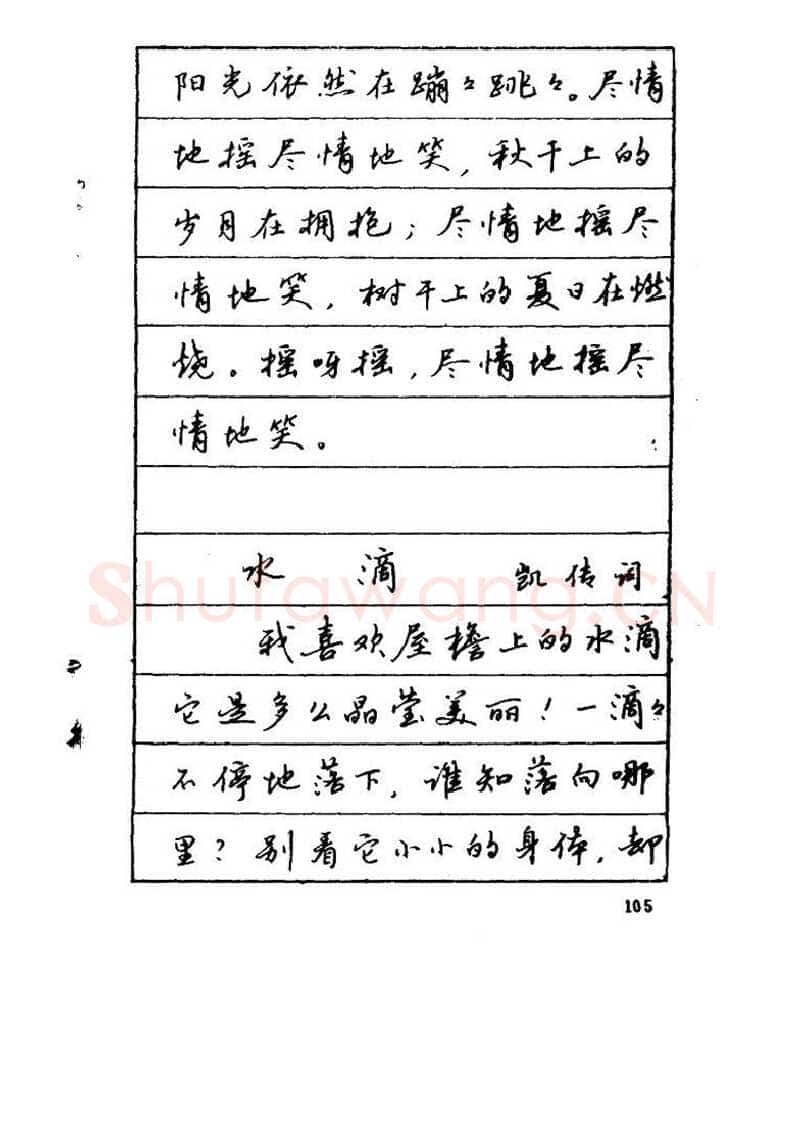 阳光依然在蹦々跳々。尽情
地摇尽情地笑,秋千上的
岁月在拥抱;尽情地摇尽
情地笑,树干上的夏日在燃
烧。摇呀摇,尽情地摇尽
情地笑。
水 滴 凯传词
我喜欢屋檐上的水滴
它是多么晶莹美丽!一滴々
不停地落下,谁知落向哪
里?别看它小小的身体,却
105
Shufawang.CN